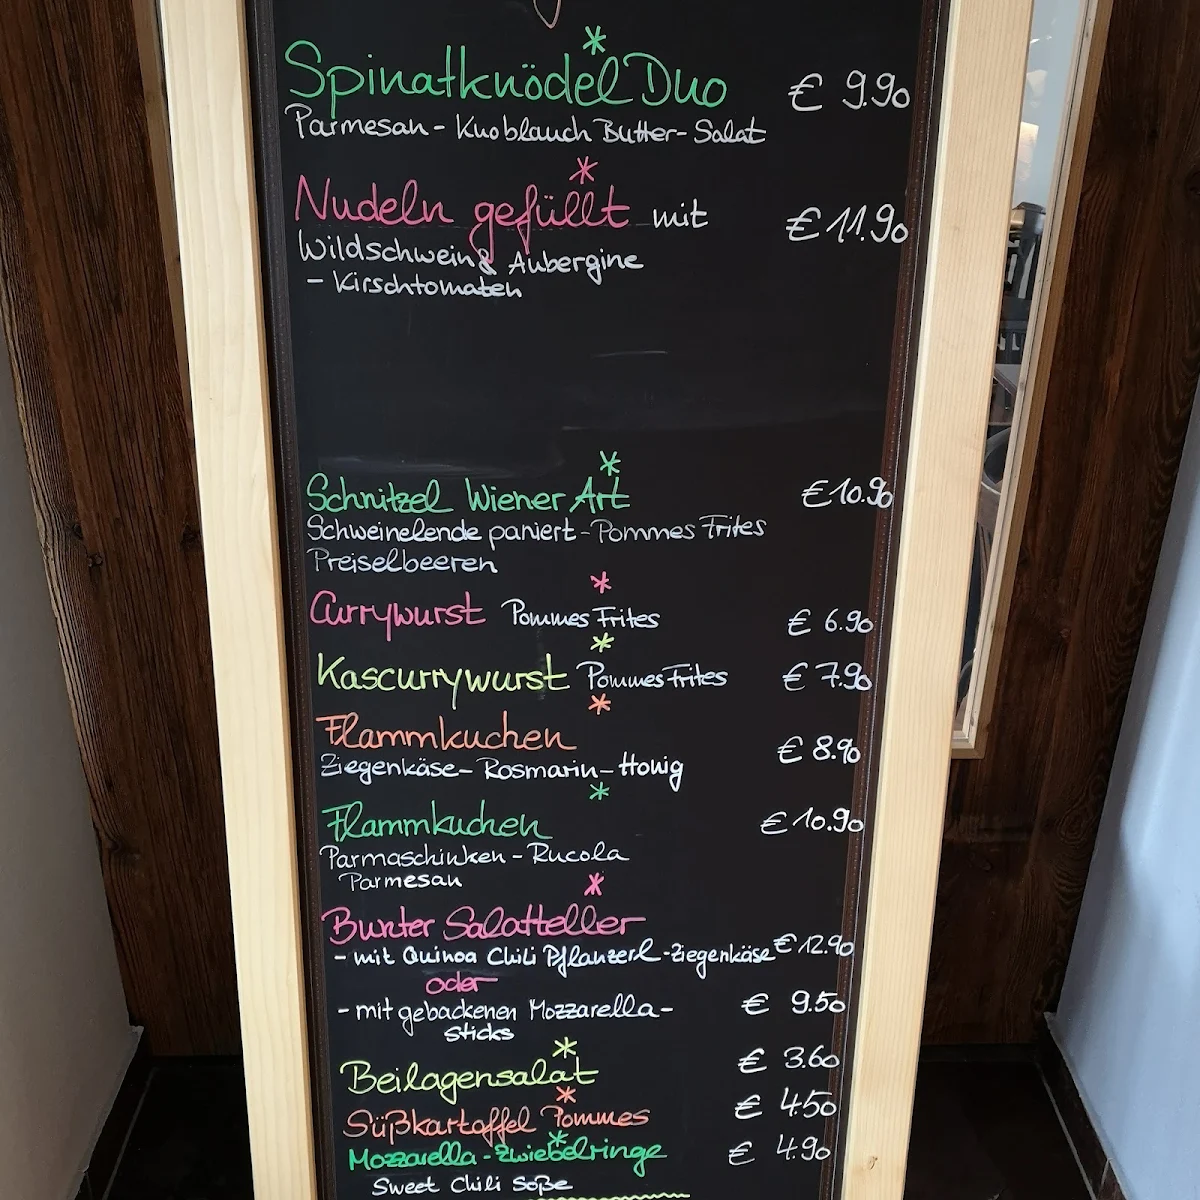 Spinatknödel Duo € 9.90
Parmesan - Knoblauch Butter - Salat
Nudeln gefüllt mit € 11.90
Wildschwein & Aubergine
- Kirschtomaten
Schnitzel Wiener Art € 10.90
Schweinelende paniert - Pommes Frites
Preiselbeeren
Currywurst Pommes Frites € 6.90
Kascurrywurst Pommes Frites € 7.90
Flammkuchen € 8.90
Ziegenkäse - Rosmarin - Honig
Flammkuchen € 10.90
Parmaschinken - Rucola
Parmesan
Bunter Salatteller
- mit Quinoa Chili Pflanzerl - Ziegenkäse € 12.90
oder
- mit gebackenen Mozzarella- € 9.50
Sticks
Beilagensalat € 3.60
Süßkartoffel Pommes € 4.50
Mozzarella - Zwiebelringe € 4.90
Sweet Chili Soße